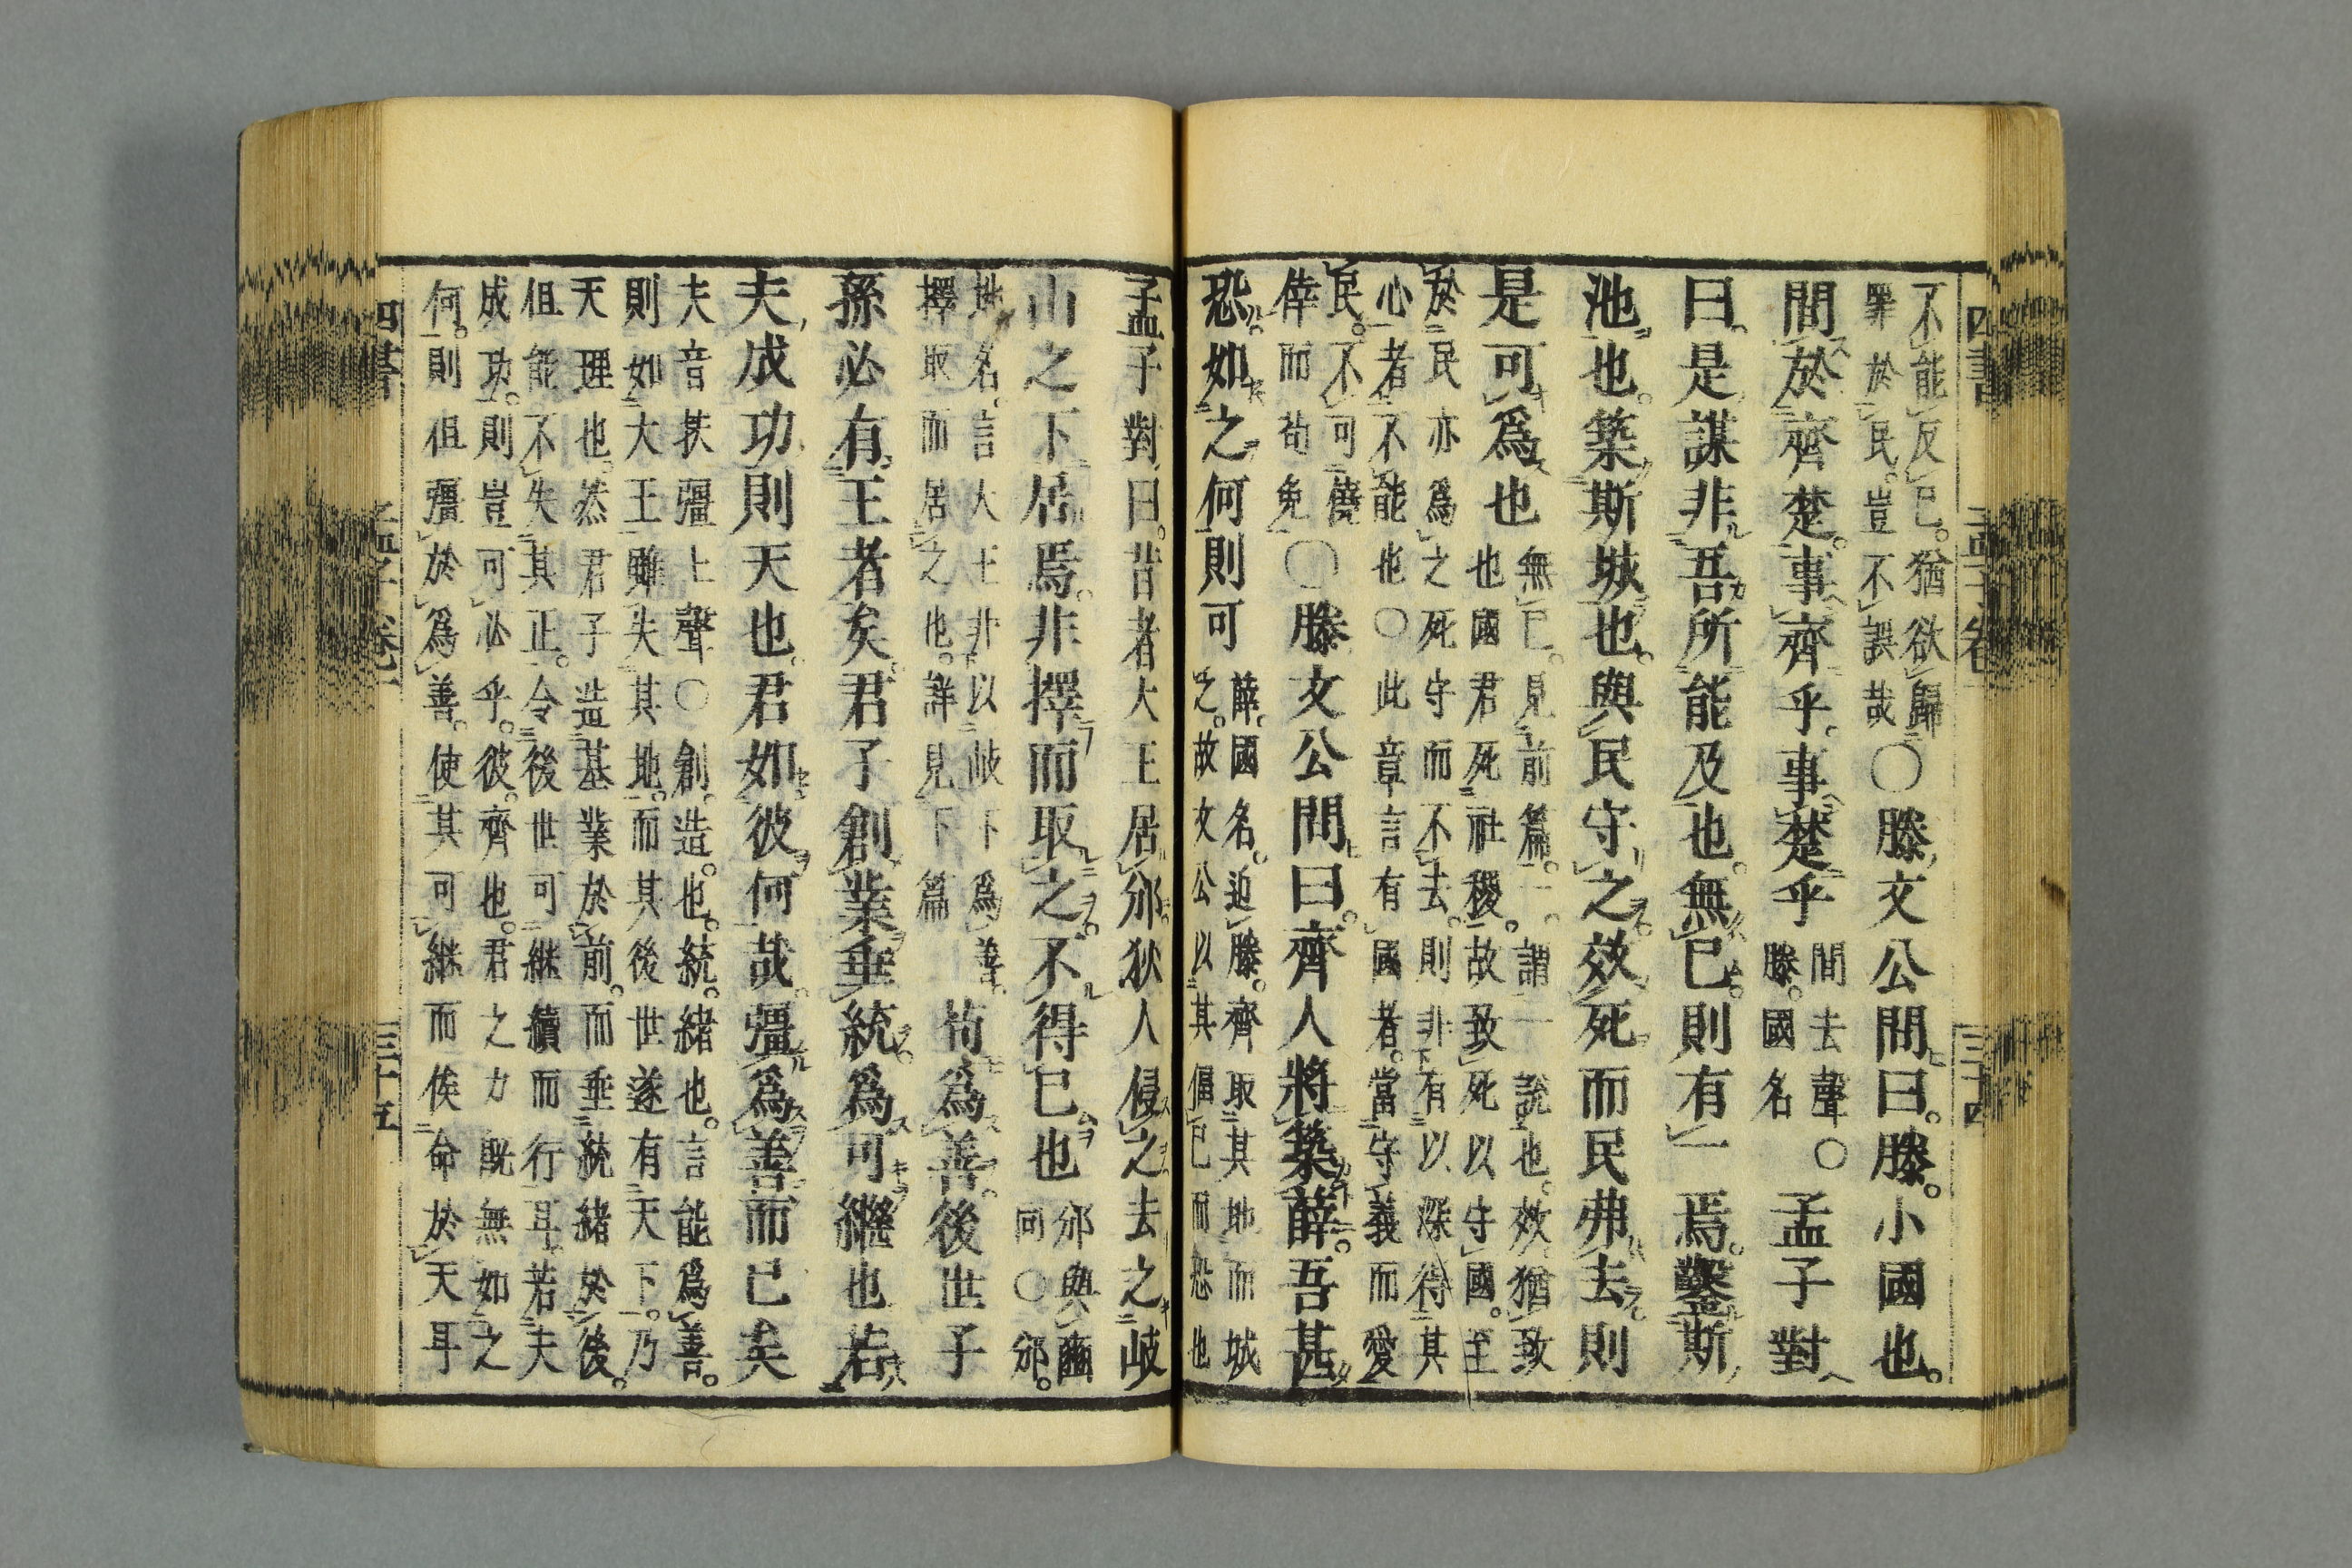 四書　孟子卷一　三十四
不能反已。猶欲歸
罪於民。豈不誤哉
○滕文公問曰。滕。小國也。
間於齊楚。事齊乎。事楚乎
間去聲○
滕。國名
孟子對
曰。是謀非吾所能及也。無已。則有一焉。鑿斯
池也。築斯城也。與民守之。效死而民弗去。則
是可爲也
無已。見前篇。一。謂一說也。效猶致
也國君死社稷。故致死以守國。至
於民亦爲之死守而不去。則非有以深得其
心者不能也○此章言有國者。當守義而愛
民。不可僥
倖而苟免
○滕文公問曰。齊人將築薛。吾甚
恐。如之何則可
薛。國名。迫滕。齊取其地而城
之。故文公以其偪已而恐也
孟子對曰。昔者大王居邠。狄人侵之去之岐
山之下居焉。非擇而取之。不得已也
邠與豳
同○邠。
地名。言大王非以岐下爲善。
擇取而居之也。詳見下篇
苟爲善。後世子
孫必有王者矣。君子創業垂統。爲可繼也若
夫成功則天也。君如彼何哉。彊爲善而已矣
夫音扶彊上聲○創。造也。統。緒也。言能爲善。
則如大王雖失其地。而其後世遂有天下。乃
天理也。然君子造基業於前。而垂統緒於後。
但能不失其正。令後世可継續而行耳若夫
成功。則豈可必乎。彼。齊也。君之力旣無如之
何。則但彊於爲善。使其可継而俟命於天耳
四書　孟子卷一　三十五